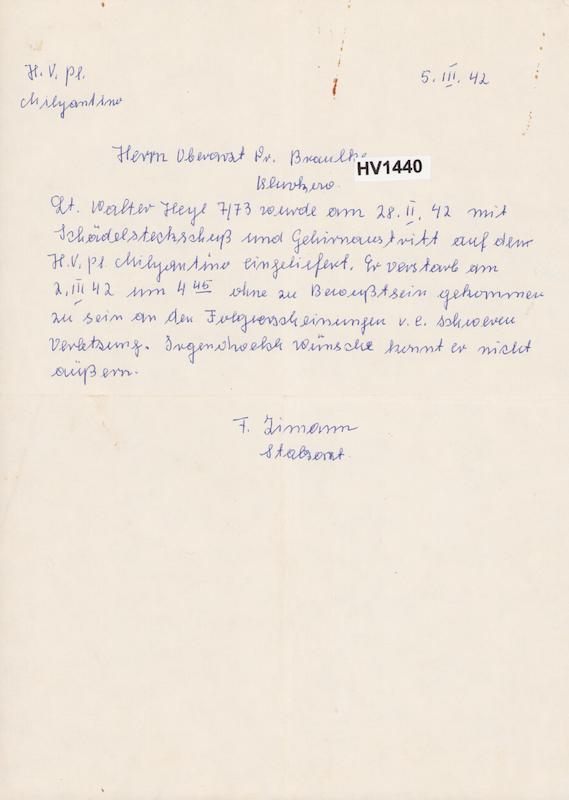 H. V. Pl.
Milyantino
5. III. 42
Herrn Oberarzt Dr. Braulke
HV1440
Lt. Walter Heyl 7/73 wurde am 28. II. 42 mit
Schädelsteckschuß und Gehirnaustritt auf dem
H.V. Pl. Milyantino eingeliefert. Er verstarb am
2. III 42 um 4 45 ohne zu Bewußtsein gekommen
zu sein an den Folgerscheinungen s. e. schweren
Verletzung. Irgendwelche Wünsche konnt er nicht
äußern.
F. Zimann
Stabsarzt.